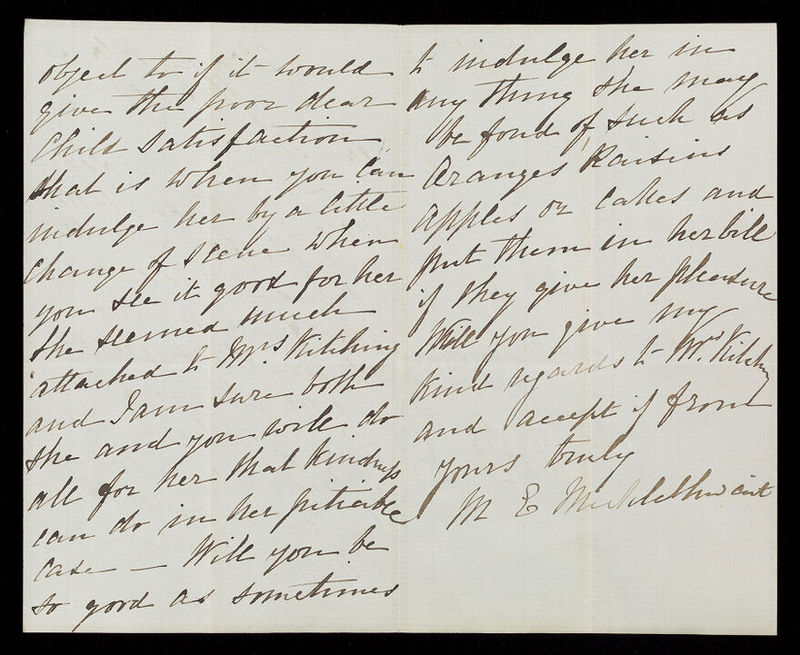 object to if it would
give the poor dear
Child satisfaction
that is when you can
indulge her by a little
change of scene when
you see it good for her
She seemed much
attached to Mrs Kitching
and I am sure both
she and you will do
all for her that kindness
can do in her pitiable
case — Will you be
so good as sometimes
to indulge her in
any thing she may
be fond of such as
Oranges Raisins
apples or cakes and
put them in her bill
if they give her pleasure
Will you give my
kind regards to Mrs Kitching
and accept if from
yours truly
M E Micklethwait